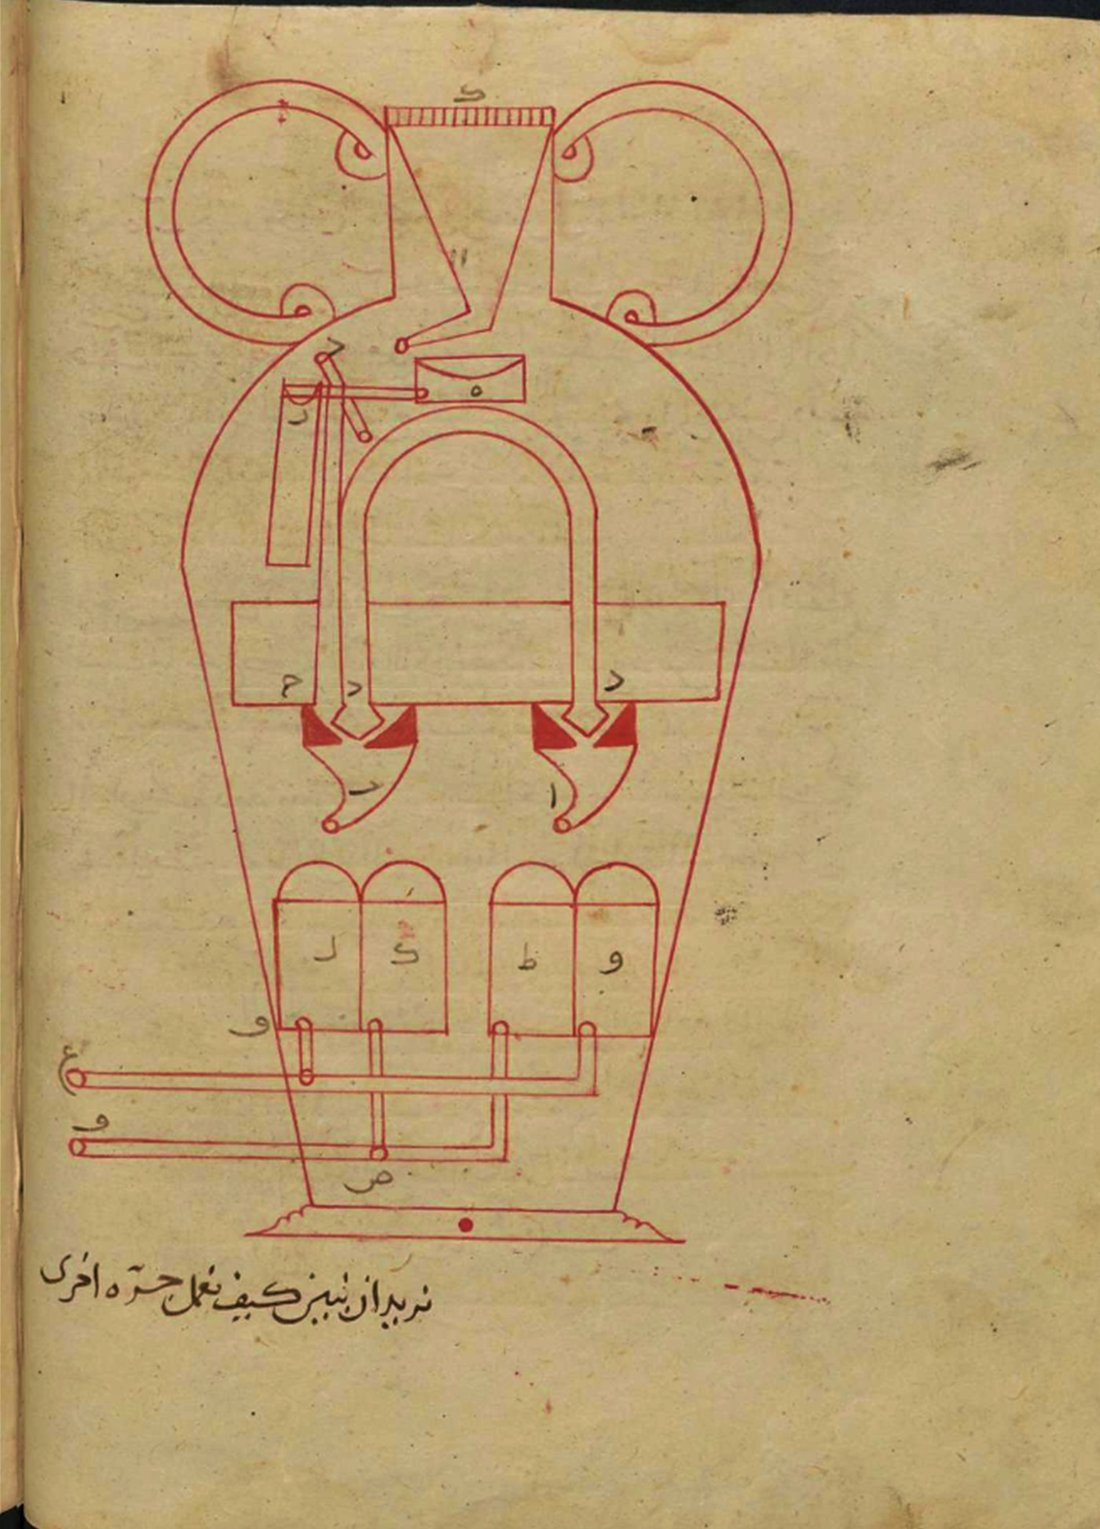 ک
ر
ه
ح
د
د
ب
ا
ل
ک
ط
و
و
ع
و
ص
نريد ان نبين كيف نعمل جرّه اخرى